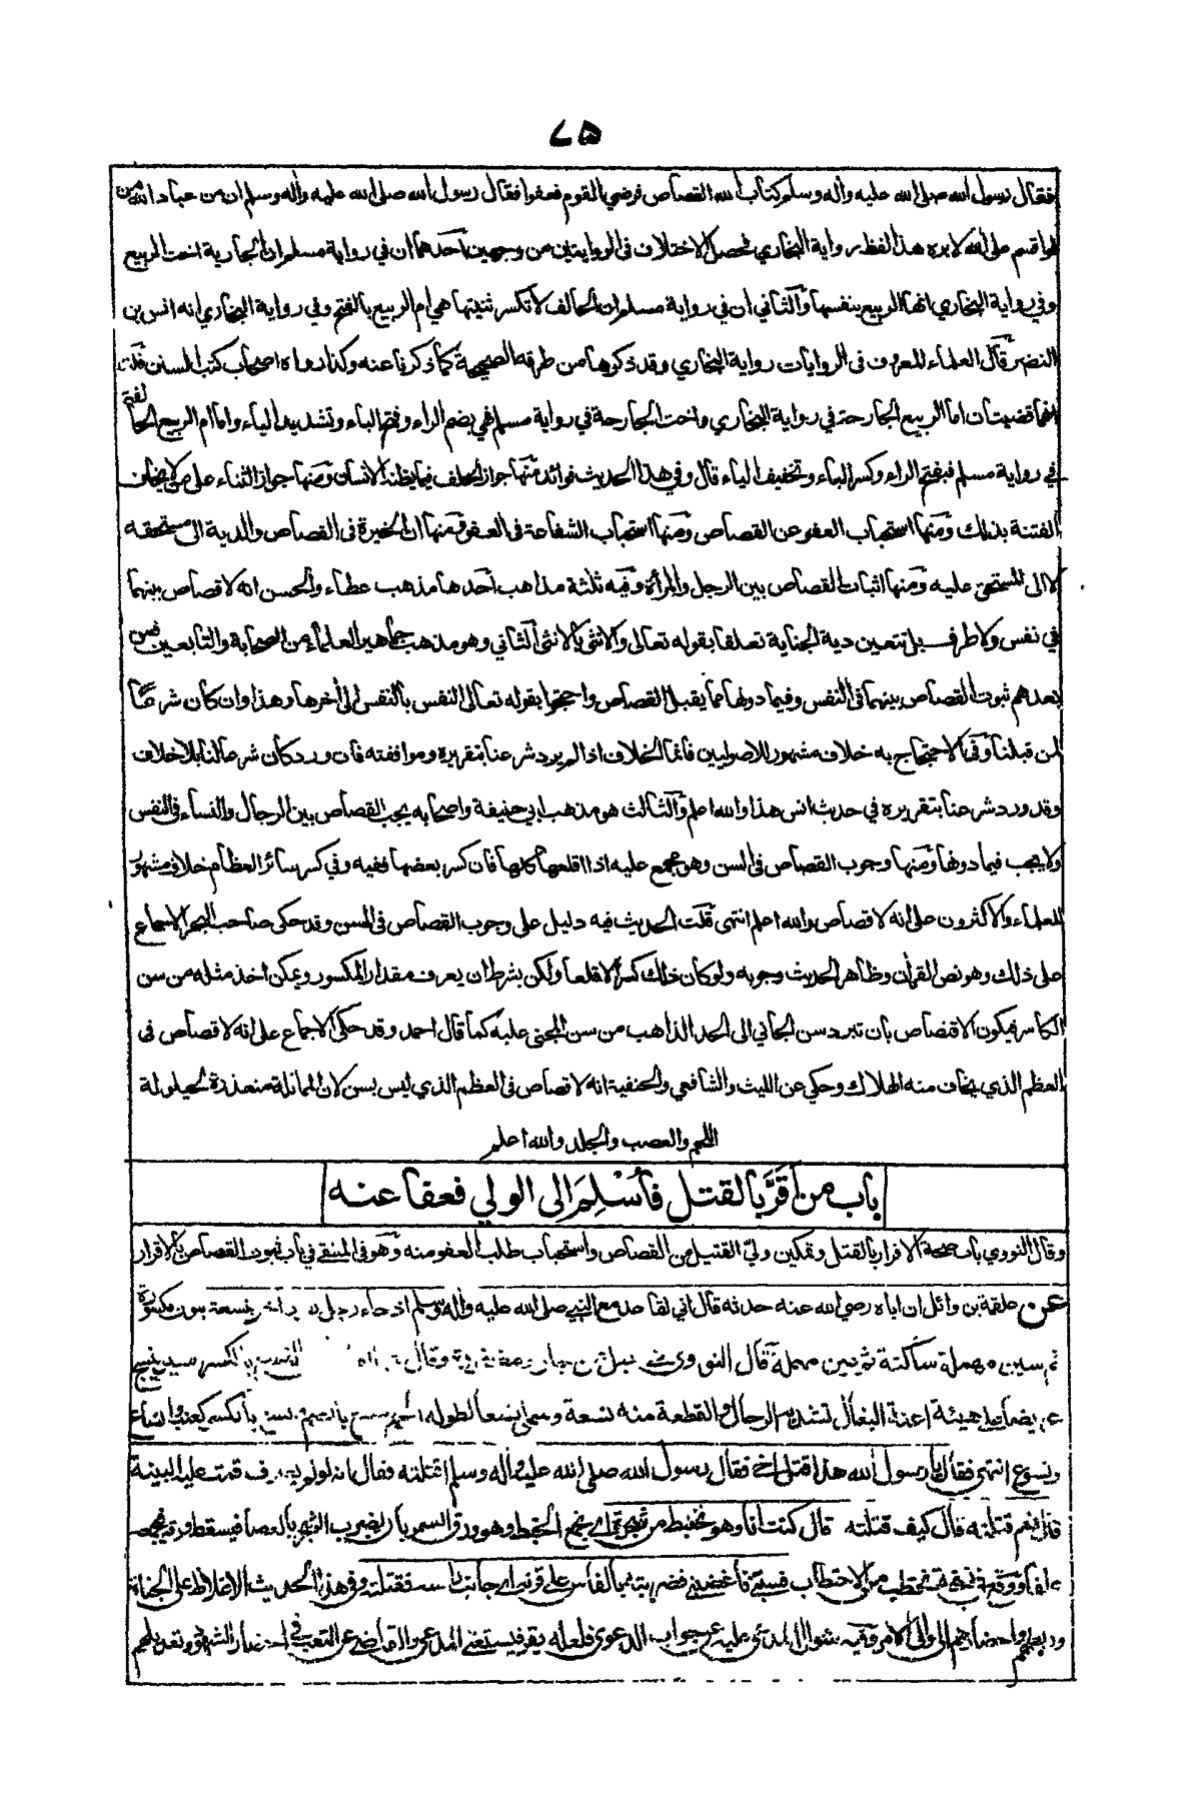 ٧٥
فقال رسول الله صلى الله عليه وأله وسلم كتاب الله القصاص فرضي القوم فعفوا فقال رسول الله صلى الله عليه وأله وسلم ان من عباد الله من
لو اقسم على الله لابره هذا لفظ رواية البخاري فحصل الاختلاف فى الروايتين من وجهين أحدهما ان في رواية مسلم ان الجارية اخت الربيع
وفي رواية البخاري انها الربيع بنفسها والثاني ان في رواية مسلم ان الحالف لا تكسر ثنيتها هي ام الربيع بالفتح وفي رواية البخاري انه انس بن
النضر قال العلماء المعروف فى الروايات رواية البخاري وقد ذكرها من طرقه الصحيحة كما ذكرنا عنه وكذا رواه اصحاب كتب السنن قلت
انهما قضيتان اما الربيع الجارحة في رواية البخاري واخت الجارحة في رواية مسلم فهي بضم الراء وفتح الباء وتشديد الياء واما ام الربيع الحالفة
في رواية مسلم فبفتح الراء وكسر الباء وتخفيف الياء قال وفي هذا الحديث فوائد منها جواز الحلف فيما يظنه الانسان ومنها جواز الثناء على من لا يخاف
الفتنة بذلك ومنها استحباب العفو عن القصاص ومنها استحباب الشفاعة فى العفو ومنها ان الخيرة فى القصاص والدية الى مستحقه
لا الى المستحق عليه ومنها اثبات القصاص بين الرجل والمرأة وفيه ثلثة مذاهب أحدها مذهب عطاء والحسن انه لا قصاص بينهما
في نفس ولا طرف بل تتعين دية الجناية تعلقا بقوله تعالى والانثى بالانثى الثاني وهو مذهب جماهير العلماء من الصحابة والتابعين فمن
بعدهم ثبوت القصاص بينهما فى النفس وفيما دونها مما يقبل القصاص واحتجوا بقوله تعالى النفس بالنفس الى أخرها وهذا وان كان شرعا
لمن قبلنا وفى الاحتجاج به خلاف مشهور للاصوليين فانما الخلاف اذا لم يرد شرعنا بتقريره وموافقته فان ورد كان شرعا لنا بلا خلاف
وقد ورد شرعنا بتقريره في حديث انس هذا والله اعلم والثالث هو مذهب ابي حنيفة واصحابه يجب القصاص بين الرجال والنساء فى النفس
ولا يجب فيما دونها ومنها وجوب القصاص فى السن وهو مجمع عليه اذا اقلعها كلها فان كسر بعضها ففيه وفي كسر سائر العظام خلاف مشهور
للعلماء والاكثرون على انه لا قصاص والله اعلم انتهى قلت الحديث فيه دليل على وجوب القصاص فى السن وقد حكى صاحب البحر الاجماع
على ذلك وهو نص القرأن وظاهر الحديث وجوبه ولو كان ذلك كسرا لا قلعا ولكن بشرط ان يعرف مقدار المكسور ويمكن اخذ مثله من سن
الكاسر فيكون الاقتصاص بان تبرد سن الجاني الى الحد الذاهب من سن المجني عليه كما قال احمد وقد حكى الاجماع على انه لا قصاص فى
العظم الذي يخاف منه الهلاك وحكي عن الليث والشافعي والحنفية انه لا قصاص فى العظم الذي ليس بسن لان المماثلة متعذرة لحيلولة
اللحم والعصب والجلد والله اعلم
باب من أَقَرَّ بالقتل فأُسْلِمَ الى الولي فعفا عنه
وقال النووي باب صحة الاقرار بالقتل وتمكين وليّ القتيل من القصاص واستحباب طلب العفو منه وهو فى المنتقى في باب ثبوت القصاص بالاقرار
عن علقمة بن وائل ان اباه رضي الله عنه حدثه قال اني لقاعد مع النبي صلى الله عليه وأله وسلم اذ جاء رجل بنسعة بنون مكسورة
ثم سين مهملة ساكنة ثم عين مهملة قال النووي هي حبل من جلد وقال
على هيئة اعنة البغال تشد به الرحال والقطعة منه نسعة وسمى نسعا لطوله
انتهى فقال يا رسول الله هذا قتل اخي فقال رسول الله صلى الله عليه وأله وسلم اقتلته فقال انه لو لم يعترف قمت عليه البينة
قال نعم قتلته قال كيف قتلته قال كنت انا وهو نختبط من شجرة اي نجمع الخبط وهو ورق السمر بان يضرب الشجر بالعصا فيسقط ورقه فيجمعه
علفا فسبني فاغضبني فضربته بالفاس على قرنه اي جانب راسه فقتلته وفي هذا الحديث الاغلاظ على الجناة
وربطهم واحضارهم الى ولي الامر وفيه سؤال المدعى عليه عن جواب الدعوى فلعله يقر فيستغني المدعي والقاضي عن التعب في احضار الشهود وتعديلهم